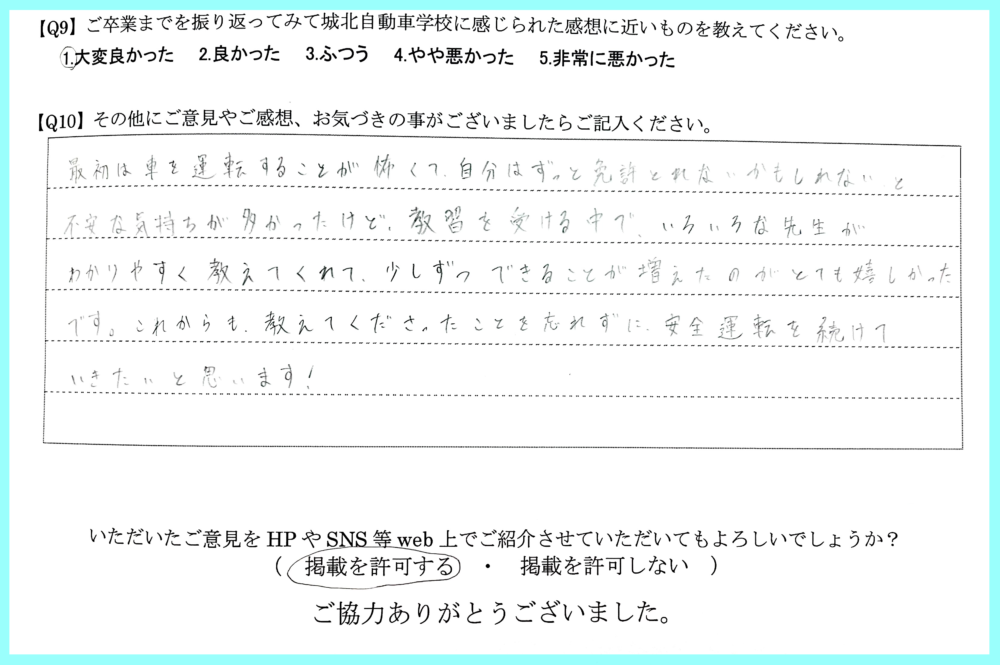 【Q9】ご卒業までを振り返ってみて城北自動車学校に感じられた感想に近いものを教えてください。
1.大変良かった 2.良かった 3.ふつう 4.やや悪かった 5.非常に悪かった
【Q10】その他にご意見やご感想、お気づきの事がございましたらご記入ください。
最初は車を運転することが怖くて、自分はずっと免許とれないかもしれないと
不安な気持ちが多かったけど、教習を受ける中で、いろいろな先生が
わかりやすく教えてくれて、少しずつできることが増えたのがとても嬉しかった
です。これからも、教えてくださったことを忘れずに、安全運転を続けて
いきたいと思います!
いただいたご意見をHPやSNS等web上でご紹介させていただいてもよろしいでしょうか?
( 掲載を許可する ・ 掲載を許可しない )
ご協力ありがとうございました。